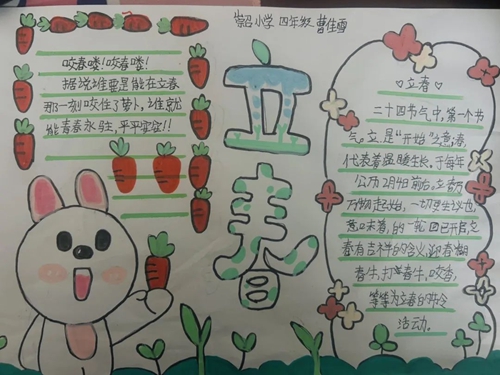 小学 四年级 曹佳雪
咬春喽!咬春喽!
据说谁要是能在立春
那一刻咬住了萝卜,谁就
能青春永驻,平平安安!!
立春
立春
二十四节气中,第一个节
气。立,是“开始”之意;春,
代表着温暖生长。于每年
公历2月4日前后。立春乃
万物起始,一切更生
意味着,的一轮回已开启立
春有吉祥的含义迎春
春牛,打春牛,咬春,
等等为立春的
活动.